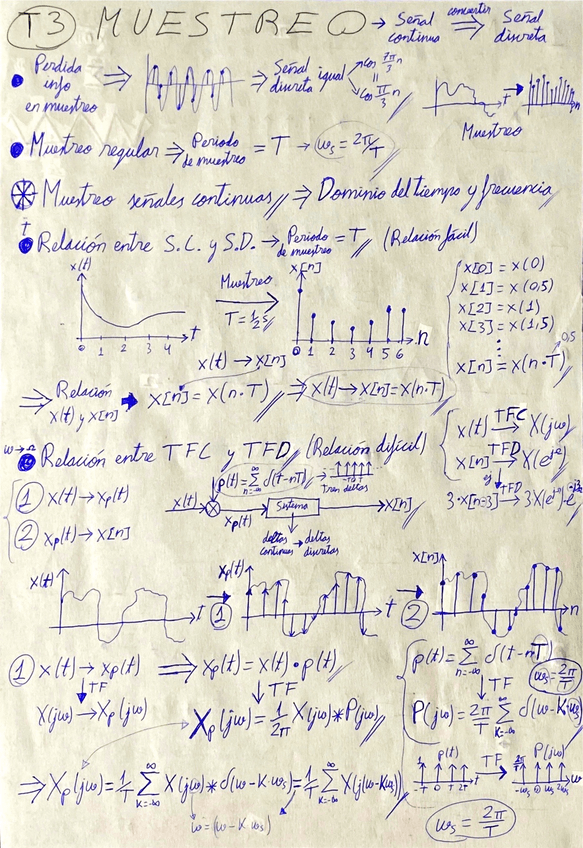 T3 MUESTREO → Señal continua convertir ⇒ Señal discreta
• Perdida info en muestreo ⇒ ⇒ Señal discreta igual cos 7π/3 n = cos π/3 n
t n
Muestreo
• Muestreo regular ⇒ Periodo de muestreo = T → ωs = 2π/T
Muestreo señales continuas ⇒ Dominio del tiempo y frecuencia
t
• Relación entre S.C. y S.D. → Periodo de muestreo = T (Relación fácil)
x(t) Muestreo x[n]
T = 1/2 s
0 1 2 3 4 t
0 1 2 3 4 5 6 n
x(t) → x[n]
x[0] = x(0)
x[1] = x(0,5)
x[2] = x(1)
x[3] = x(1,5)
⋮
x[n] = x(n·T) 0,5
⇒ Relación x(t) y x[n] → x[n] = x(n·T) ⇒ x(t) → x[n] = x(n·T)
x(t) TFC → X(jω)
x[n] TFD → X(e^jΩ)
ω → Ω
• Relación entre TFC y TFD (Relación difícil)
ej TFD
3·x[n-3] → 3X(e^jΩ)·e^-j3Ω
① x(t) → xp(t)
② xp(t) → x[n]
p(t) = Σ n=-∞ ∞ δ(t-nT) → Tren deltas
x(t) → ⊗ → xp(t) → Sistema → x[n]
deltas continuas → deltas discretas
x(t) t ① xp(t) t ② x[n] n
① x(t) → xp(t) ⇒ xp(t) = x(t)·p(t)
↓ TF ↓ TF
X(jω) → Xp(jω) Xp(jω) = 1/2π X(jω) * P(jω)
p(t) = Σ n=-∞ ∞ δ(t-n·T)
ωs = 2π/T
↓ TF
P(jω) = 2π/T Σ k=-∞ ∞ δ(ω-k·ωs)
⇒ Xp(jω) = 1/T Σ k=-∞ ∞ X(jω) * δ(ω-k·ωs) = 1/T Σ k=-∞ ∞ X(j(ω-kωs))
ω = (ω-k·ωs)
p(t) TF P(jω)
-T 0 T 2T t 2π/T -ωs 0 ωs 2ωs ω
ωs = 2π/T